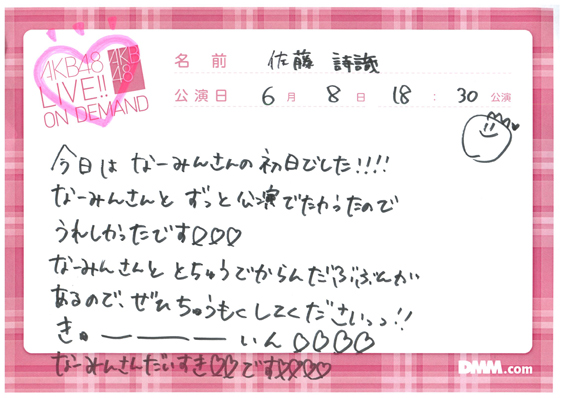 AKB48
LIVE!!
ON DEMAND
AKB
48
名前 佐藤 詩識
公演日 6月 8日 18:30公演
今日は なーみんさんの初日でした!!!!
なーみんさんと ずっと公演でたかったので
うれしかったです♡♡♡
なーみんさんと とちゅうでからんだぶぶんが
あるので、ぜひちゅうもくしてくださいっっ!!
き。ーーーーいん♡♡♡♡
なーみんさんだいすき♡♡です♡♡♡
DMM.com